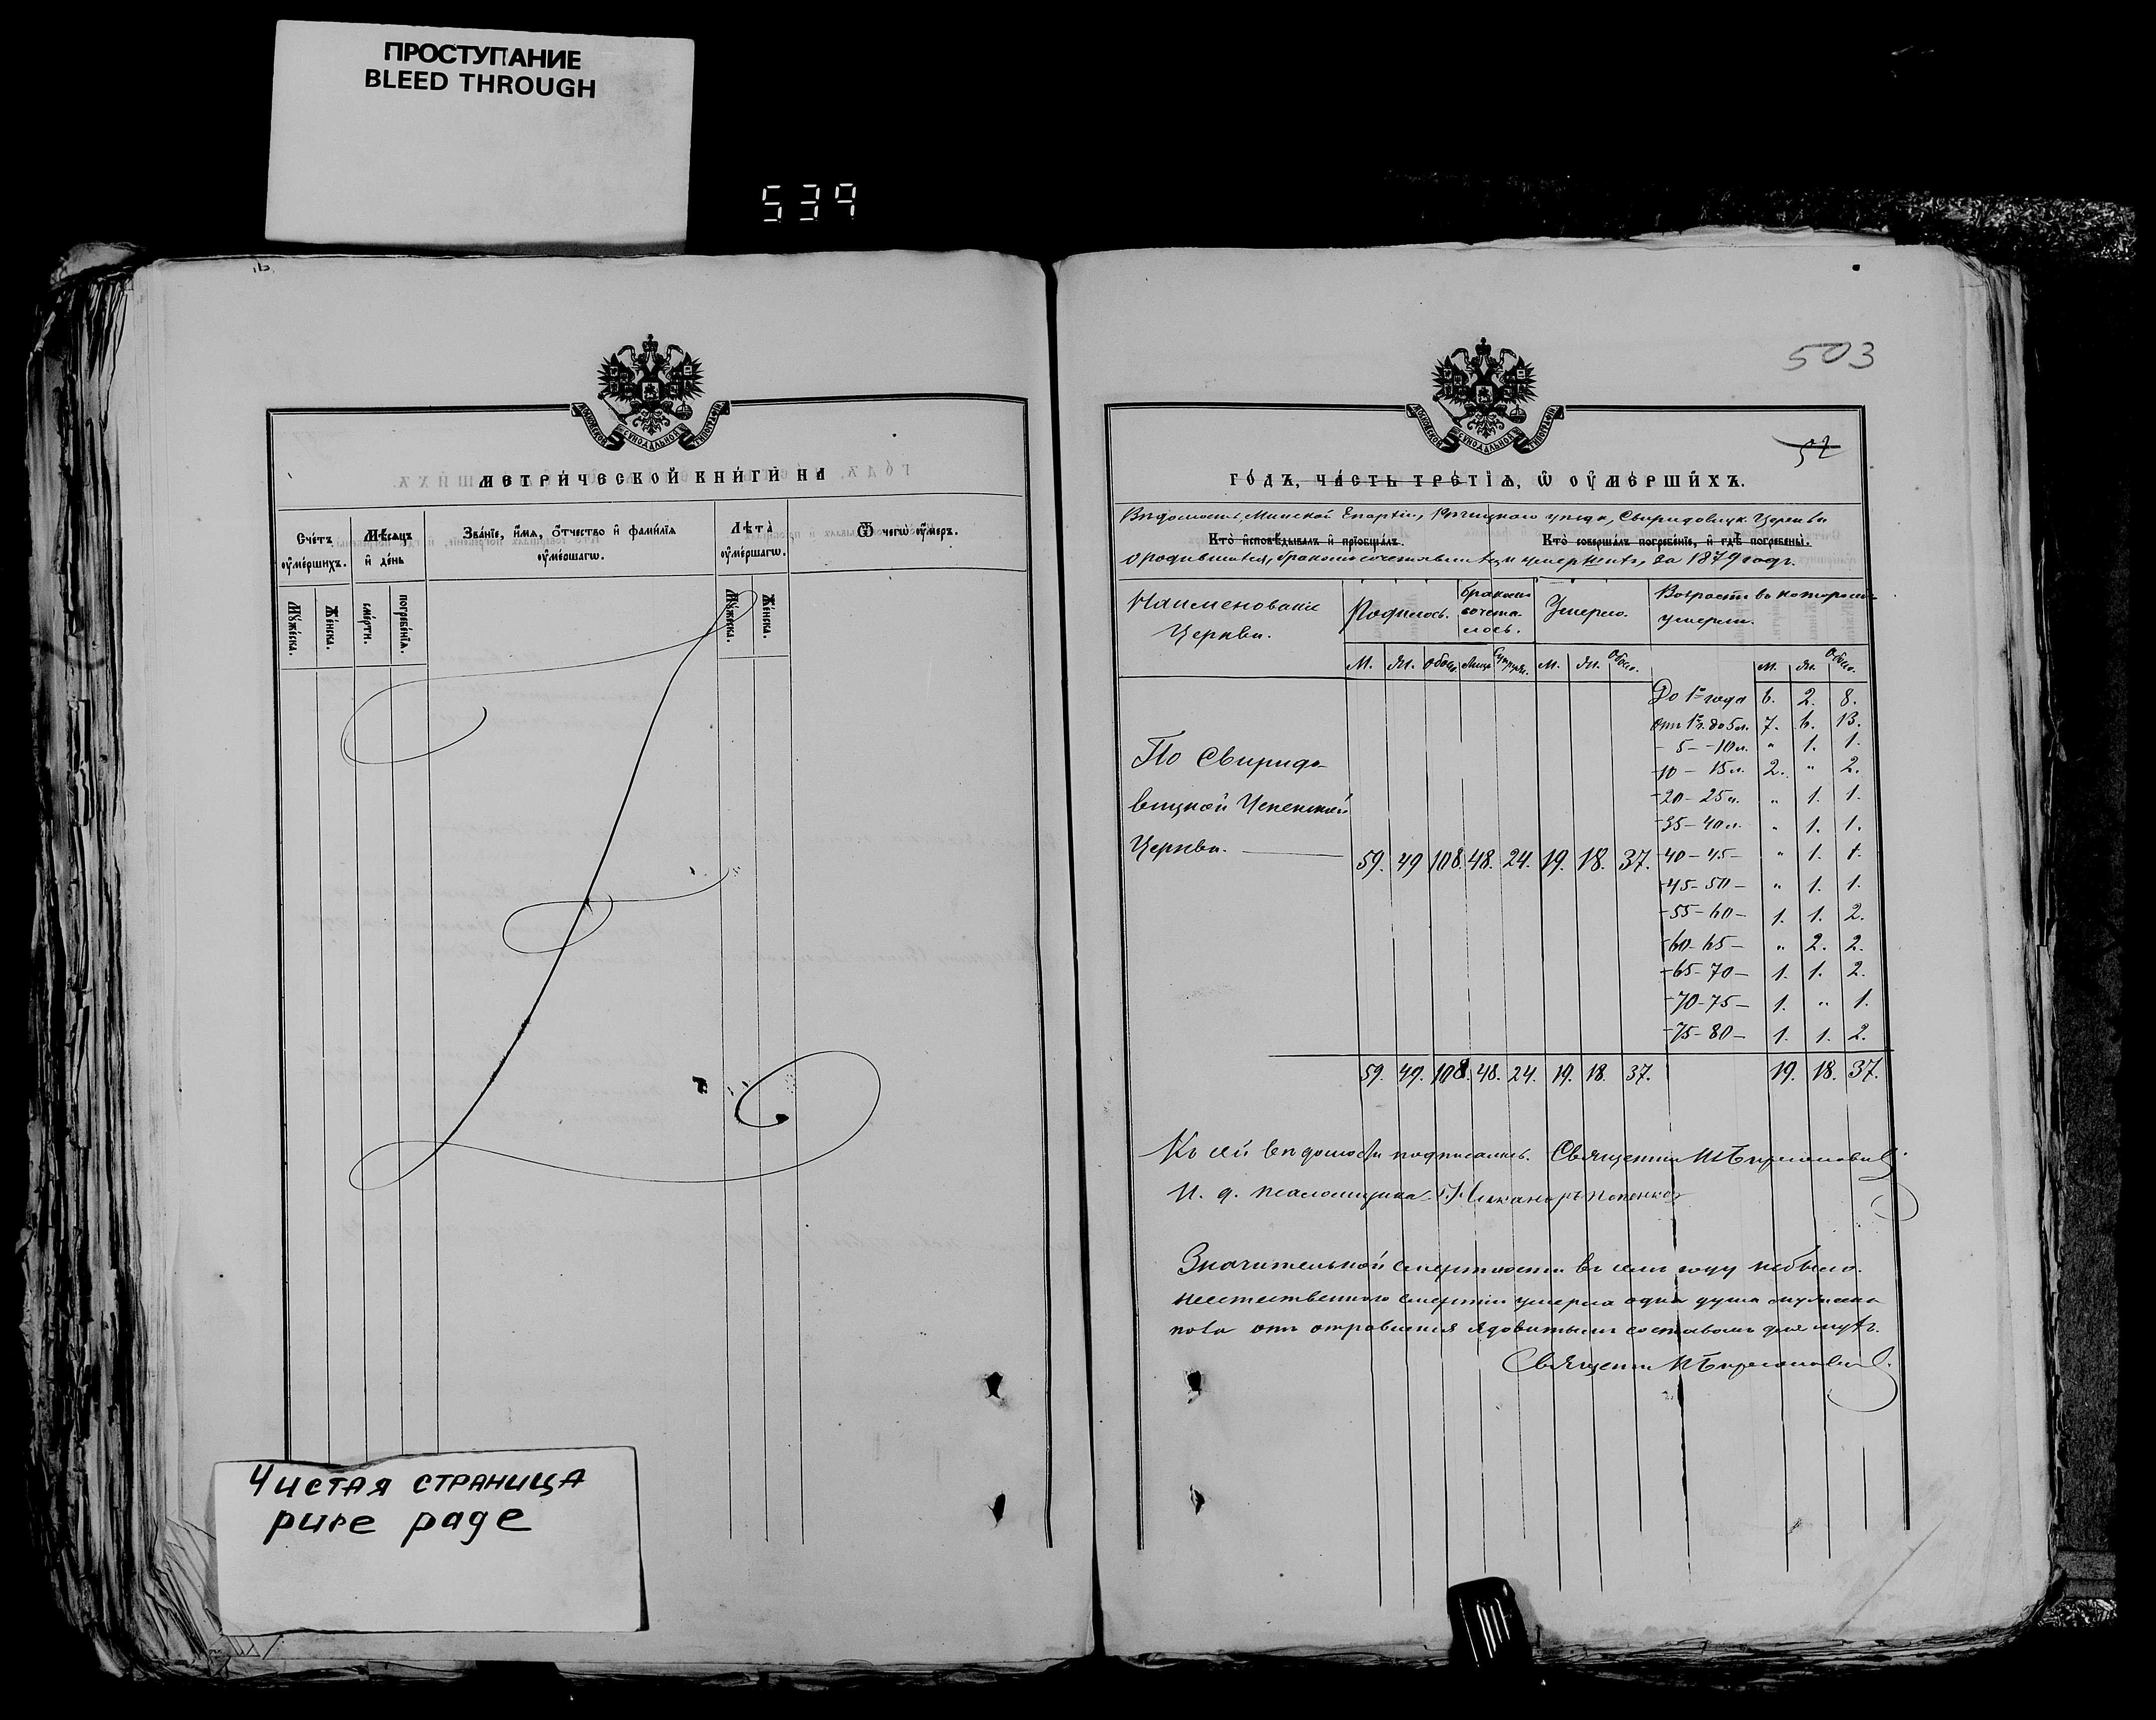 ПРОСТУПАНИЕ
BLEED THROUGH
539
МОСКОВСКОЙ СѴНОДАЛЬНОЙ ТИПОГРАФІИ
МЕТРИЧЕСКОЙ КНИГИ НА
Счетъ оумершихъ.
Мѣсяцъ и день
Званіе, имя, отчество и фамилія оумершагѡ.
Лѣта оумершагѡ.
Ѿ чегѡ оумеръ.
Мужеска.
Женска.
смерти.
погребенія.
Мужеска.
Женска.
Чистая страница
pure page
503
МОСКОВСКОЙ СѴНОДАЛЬНОЙ ТИПОГРАФІИ
52
ГОДЪ, ЧАСТЬ ТРЕТІЯ, Ѡ ОУМЕРШИХЪ.
Вѣдомость, Минской Епархіи, Рѣчицкаго уѣзда, Свиридовицк. Церкви
Кто исповѣдывалъ и пріобщалъ.
Кто совершалъ погребеніе, и гдѣ погребены.
о родившихся, бракомъ сочетавшихся и умершихъ, за 1879 годъ.
Наименованіе Церкви.
Родилось.
Бракомъ сочета-лось.
Умерло.
Возрастъ въ которомъ умерли.
М. Ж. Обоего Лицъ Супруж. М. Ж. Обоего. М. Ж. Обоего.
До 1го года 6. 2. 8.
Отъ 1г. до 5 л. 7. 6. 13.
- 5 - 10 л. " 1. 1.
По Свиридо-
-10 - 15 л. 2. " 2.
вицкой Успенской
-20 - 25 л. " 1. 1.
-35 - 40 л. " 1. 1.
Церкви. 59. 49 108. 48. 24. 19. 18. 37.
-40 - 45 - " 1. 1.
-45 - 50 - " 1. 1.
-55 - 60 - 1. 1. 2.
-60 - 65 - " 2. 2.
-65 - 70 - 1. 1. 2.
-70 - 75 - 1. " 1.
-75 - 80 - 1. 1. 2.
59. 49. 108. 48. 24. 19. 18. 37. 19. 18. 37.
Къ сей вѣдомости подписались. Священникъ
И. д. псаломщика Никаноръ Попенко
Значительной смертности въ семъ году небыло.
неестественного смертію умерла одна душа мужска
пола отъ отравленія ядовитымъ составомъ для мухъ.
Священникъ